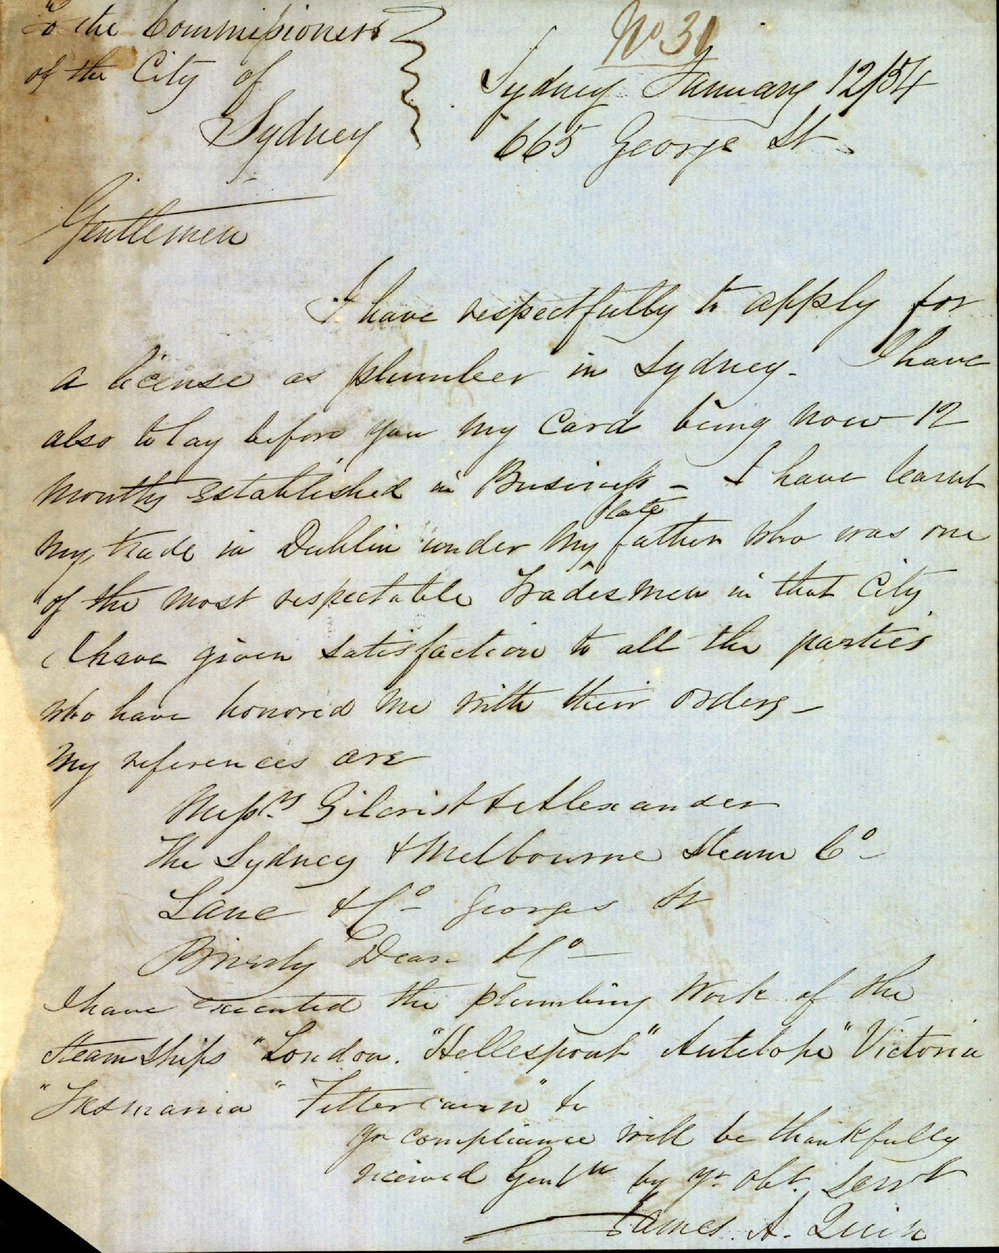 To the Commissioners
of the City of
Sydney
No 31
Sydney January 12/54
665 George St
Gentlemen
I have respectfully to apply for
a license as plumber in Sydney. I have
also to lay before you my Card being now 12
months established in Business – I have learnt
my trade in Dublin under my late father who was one
of the most respectable Tradesmen in that City
I have given satisfaction to all the parties
who have honored me with their orders –
My references are
Messrs Gilcrist & Alexander
The Sydney & Melbourne Steam Co
Lane & Co George St
Brierly Dean & Co
I have executed the plumbing Work of the
Steam Ships "London. "Hellespont" Antelope" Victoria
"Tasmania" Fettercairn" &c
yr compliance will be thankfully
received Gentn by yr obt. Servt
James. A. Quin